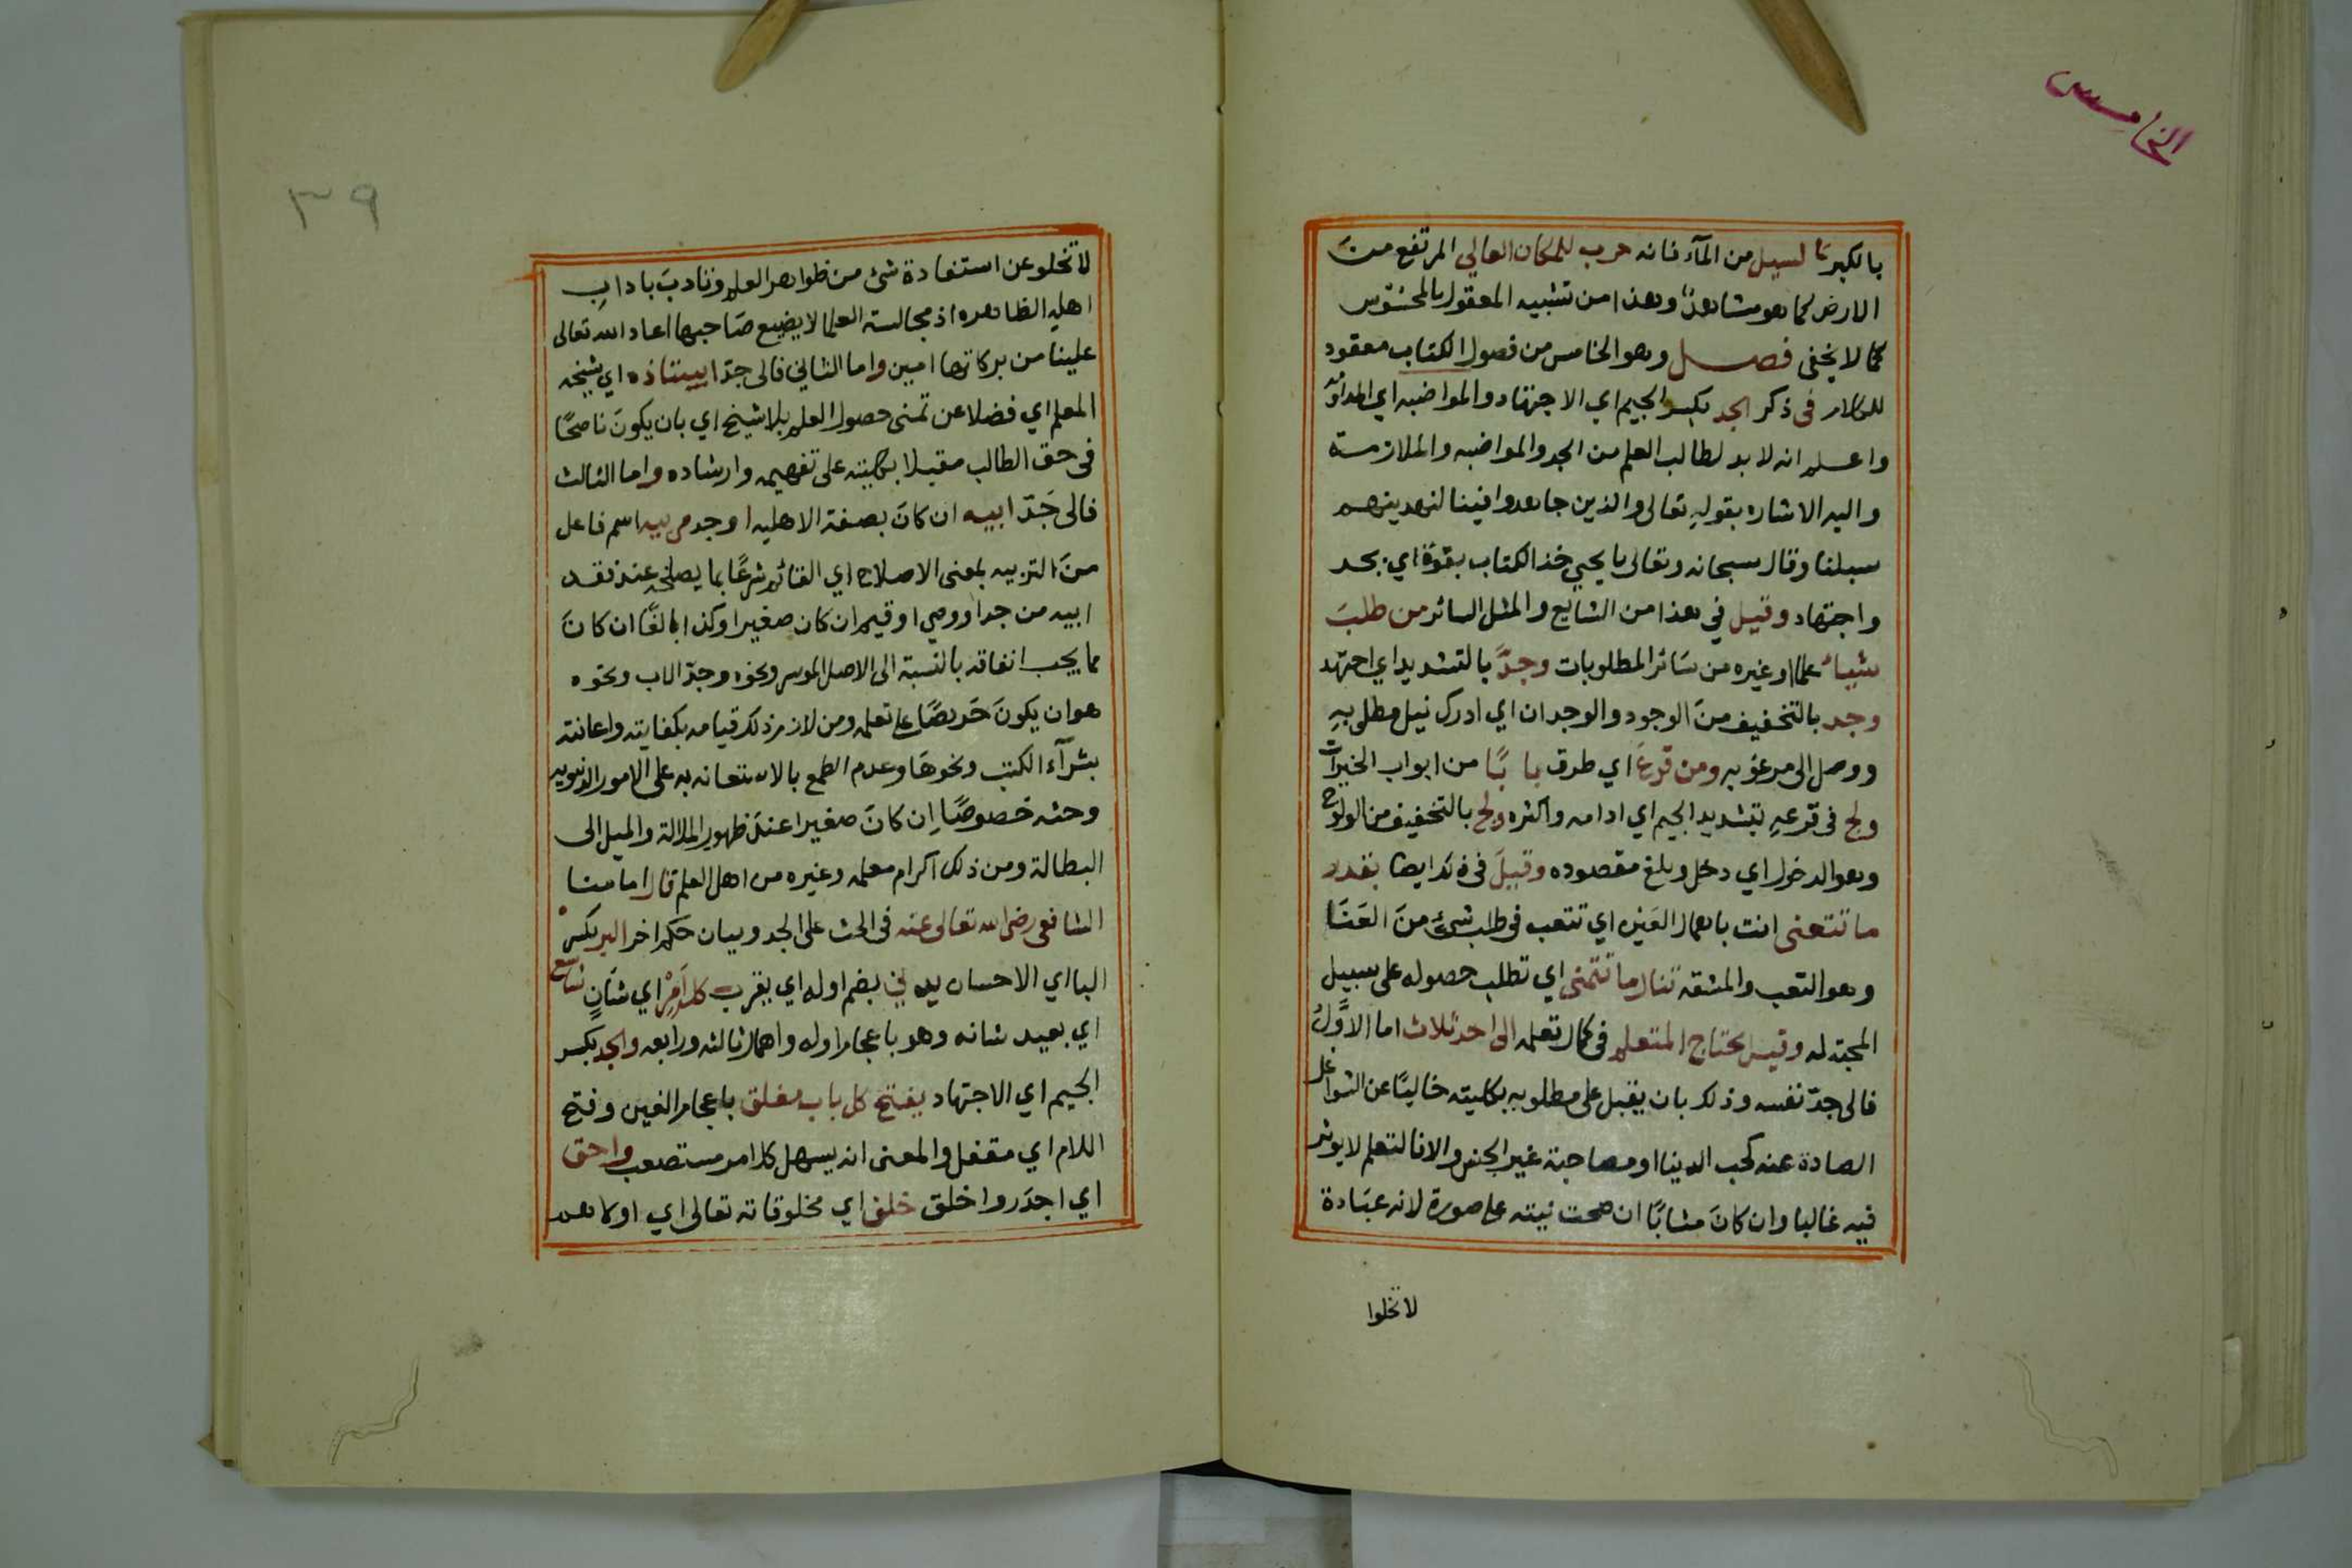 الخامس
بالكبر كالسيل من المآء فانه حرب للمكان العالي المرتفع منَ
الارض كما هو مشاهدٌ وهذا من تشبيه المعقول بالمحسوس
كما لا يخفى فصل وهو الخامس من فصول الكتاب معقود
للكلام فى ذكر الجد بكسر الجيم اي الاجتهاد والمواضبه اي المداومه
واعلم انه لا بد لطالب العلم من الجد والمواضبه والملازمة
واليه الاشاره بقولهِ تعالى والذين جاهدوا فينا لنهدينهم
سبلنا وقال سبحانه وتعالى يا يحيي خذ الكتاب بقوة اي بجد
واجتهاد وقيل في هذا من الشايع والمثل السائر من طلبَ
شياء علما اوغيره من سَائر المطلوبات وجدَّ بالتشديد اي اجتهد
وجد بالتخفيف منَ الوجود والوجدان اي ادرك نيل مطلى بهِ
ووصل الى مرغوبه ومن قرعَ اي طرق بابًا من ابواب الخيرات
ولج فى قرعهِ بتشديد الجيم اي ادامه واكثره ولج بالتخفيف من الولوج
وهو الدخول اي دخل وبلغ مقصوده وقيلَ فى ذلك ايضا بقدر
ما تتعنى انت باهمال العَين اي تتعب فى طلب شئ منَ العَنَا
وهو التعب والمشقه تنال ما تتمنى اي تطلب حصوله على سبيل
المجبه له وقيل يحتاج المتعلم فى كمال تعلمه الى احد ثلاث اما الاوَّلُ
فالى جدّ نفسه وذلك بان يقبل على مطلوبهِ بكليته خاليًا عن الشواغل
الصادة عنه كحب الدنيا او مصاحبة غير الجنس والا فالتعلم لا يوثر
فيه غالبا وان كانَ مثابًا ان صحت نيته على صورة لانه عبَادة
لا تخلوا
٣٩
لا تخلو عن استفادة شئ من ظواهر العلم وتادبَ بادابِ
اهليه الظاهره اذ مجالسة العلما لا يضيع صَاحبها اعاد الله تعالى
علينا من بركاتها امين واما الثاني فالى جدّ استاذه اي شيخه
المعلم اي فضلا عن تمنى حصول العلم بلا شيخ اي بان يكونَ ناصحًا
فى حق الطالب مقبلا بكليته على تفهيمه وارشاده واما الثالث
فالى جَدّ ابيه ان كانَ بصفة الاهليه اوجد مربيه اسم فاعل
منَ التربيه بمعنى الاصلاح اي القائم شرعًا بما يصلحهِ عند فقد
ابيه من جد اووصي او قيم ان كان صغيرا وكذا بالغًا ان كانَ
مما يجب انفاقه بالنسبة الى الاصل الموسر ونحوه وجدّ الاب ونحوه
هو ان يكونَ حَريصًا على تعلمه ومن لازم ذلك قيامه بكفايته واعانته
بشرآء الكتب ونحوهَا وعدم الطمع بالاستعانه به على الامور الدنيويه
وحثه خصوصًا اِن كانَ صغيرا عندَ ظهور الملالة والميل الى
البطالة ومن ذلك اكرام معلمه وغيره من اهل العلم قال امامنا
الشافعى رضى الله تعالى عنه فى الحث على الجد وبيان حكم اخر البر بكسر
البا اي الاحسان يدني بضم اوله اي يقرب كل اَمْرٍ اي شَانٍ شاسع
اي بعيد شانه وهو باعجام اوله واهمال ثالثه ورابعه والجد بكسر
الجيم اي الاجتهاد يفتح كل باب مغلق باعجام الغين وفتح
اللام اي مقفل والمعنى انه يسهل كل امر مستصعب واحق
اي اجدَر واخلق خلق اي مخلوقاته تعالى اي اولاهم